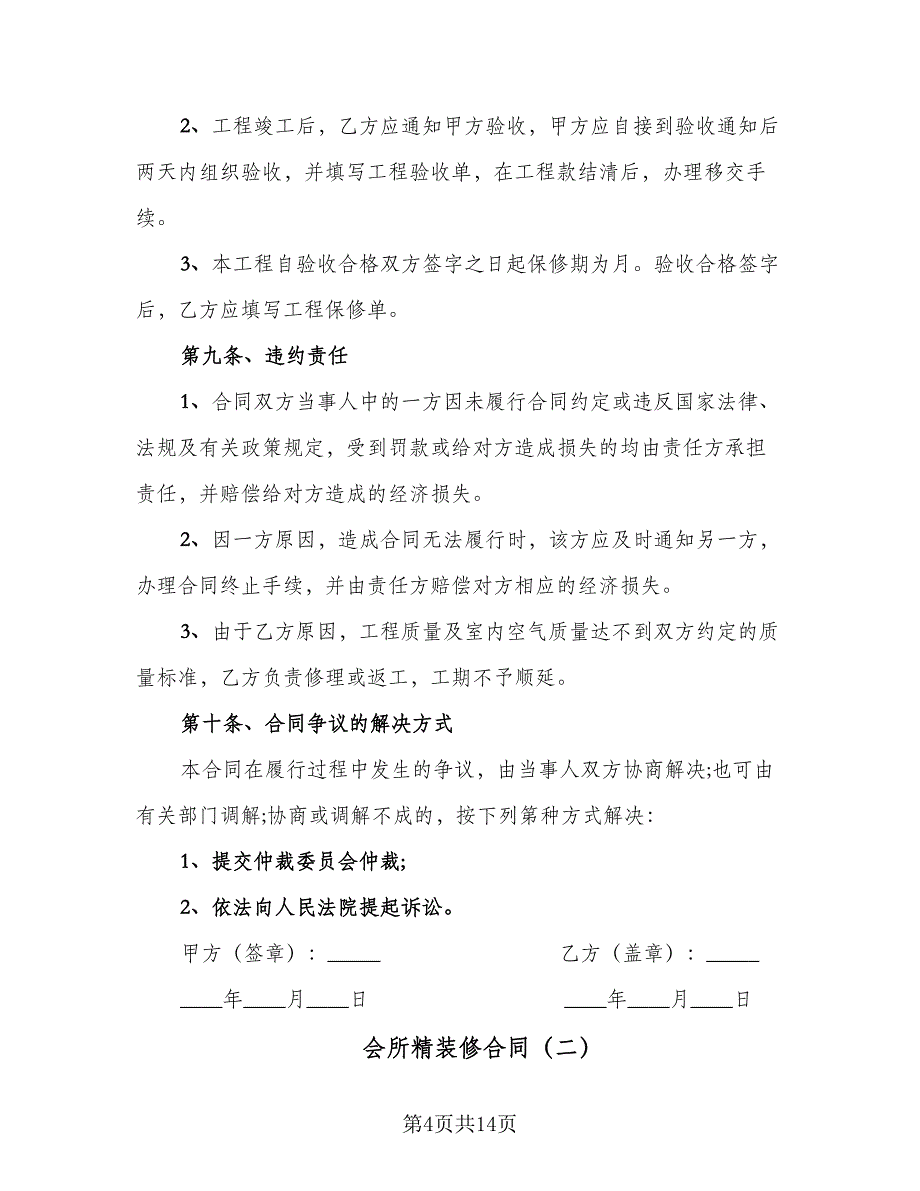 2、工程竣工后，乙方应通知甲方验收，甲方应自接到验收通知后
两天内组织验收，并填写工程验收单，在工程款结清后，办理移交手
续。
3、本工程自验收合格双方签字之日起保修期为月。验收合格签字
后，乙方应填写工程保修单。
第九条、违约责任
1、合同双方当事人中的一方因未履行合同约定或违反国家法律、
法规及有关政策规定，受到罚款或给对方造成损失的均由责任方承担
责任，并赔偿给对方造成的经济损失。
2、因一方原因，造成合同无法履行时，该方应及时通知另一方，
办理合同终止手续，并由责任方赔偿对方相应的经济损失。
3、由于乙方原因，工程质量及室内空气质量达不到双方约定的质
量标准，乙方负责修理或返工，工期不予顺延。
第十条、合同争议的解决方式
本合同在履行过程中发生的争议，由当事人双方协商解决;也可由
有关部门调解;协商或调解不成的，按下列第种方式解决：
1、提交仲裁委员会仲裁;
2、依法向人民法院提起诉讼。
甲方（签章）：_____ 乙方（盖章）：_____
____年____月____日 ____年____月____日
会所精装修合同（二）
第4页共14页